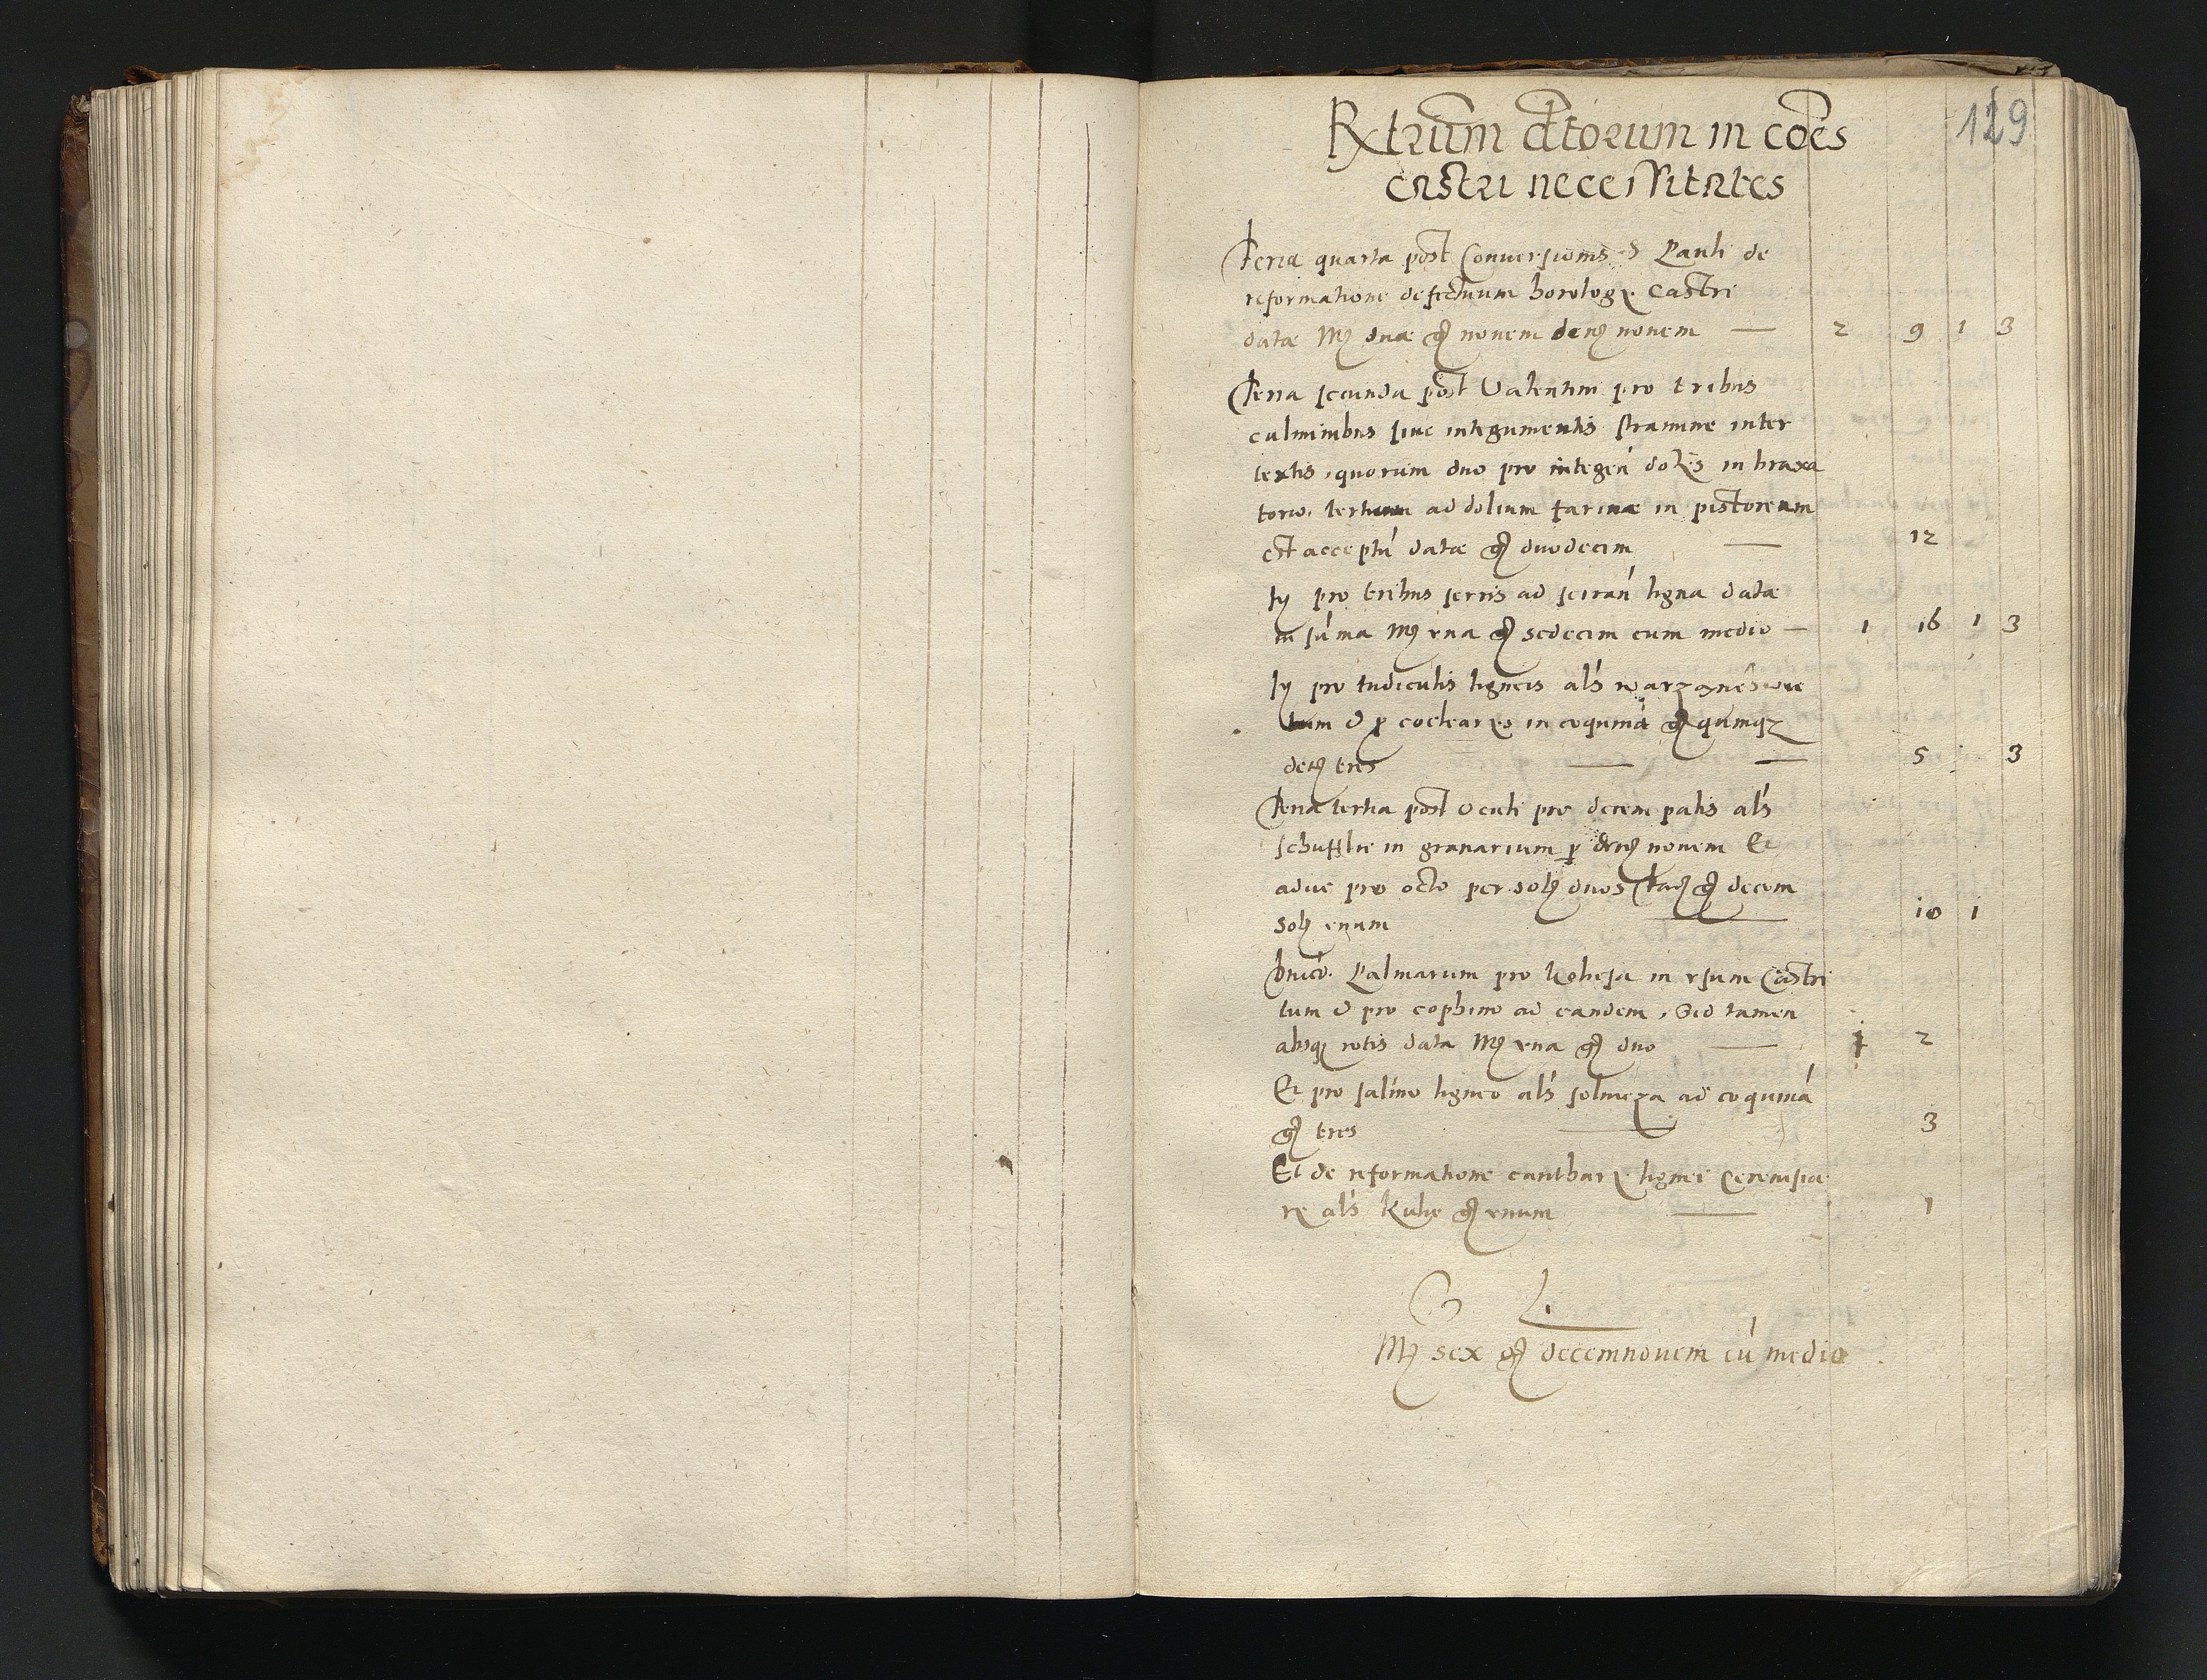 129
Rxtrum dctorum in coes
castri necessitates
Feria quarta post Conversionis S Pauli de
reformatione defectuum horology castri
datae Mr duae gr novem denr novem — 2 9 1 3
Feria secunda post Valentini pro tribus
culminibus sive integumentis stramine inter
textis, quorum duo pro integen dolys in braxa
torio, tertium ad dolium farinae in pistoream
est acceptu datae gr duodecim — 12
Ity pro tribus serris ad seran ligna datae
in suma Mr vna gr sedecim cum medio — 1 16 1 3
Ity pro tudiculis ligneis als warzanesive
tum & p coclearys in coquina gr quinqz
denr tres — — 5 3
Feria tertia post Oculi pro decem palis als
schufflie in granarium p denr novem Et
aduc pro octo per solr duos facr gr decem
solr vnum — 10 1
Dnico Palmarum pro koliesa in vsum Castri
tum & pro cophino ad eandem, Sed tamen
absqz rotis data Mr vna gr duo — 1 2
Et pro salino ligneo als solnicza ad coquina
gr tres — 3
Et de reformatione canthary lignei cerevisia
ry als kufie gr vnum — 1
Mr sex gr decemnovem cu medio